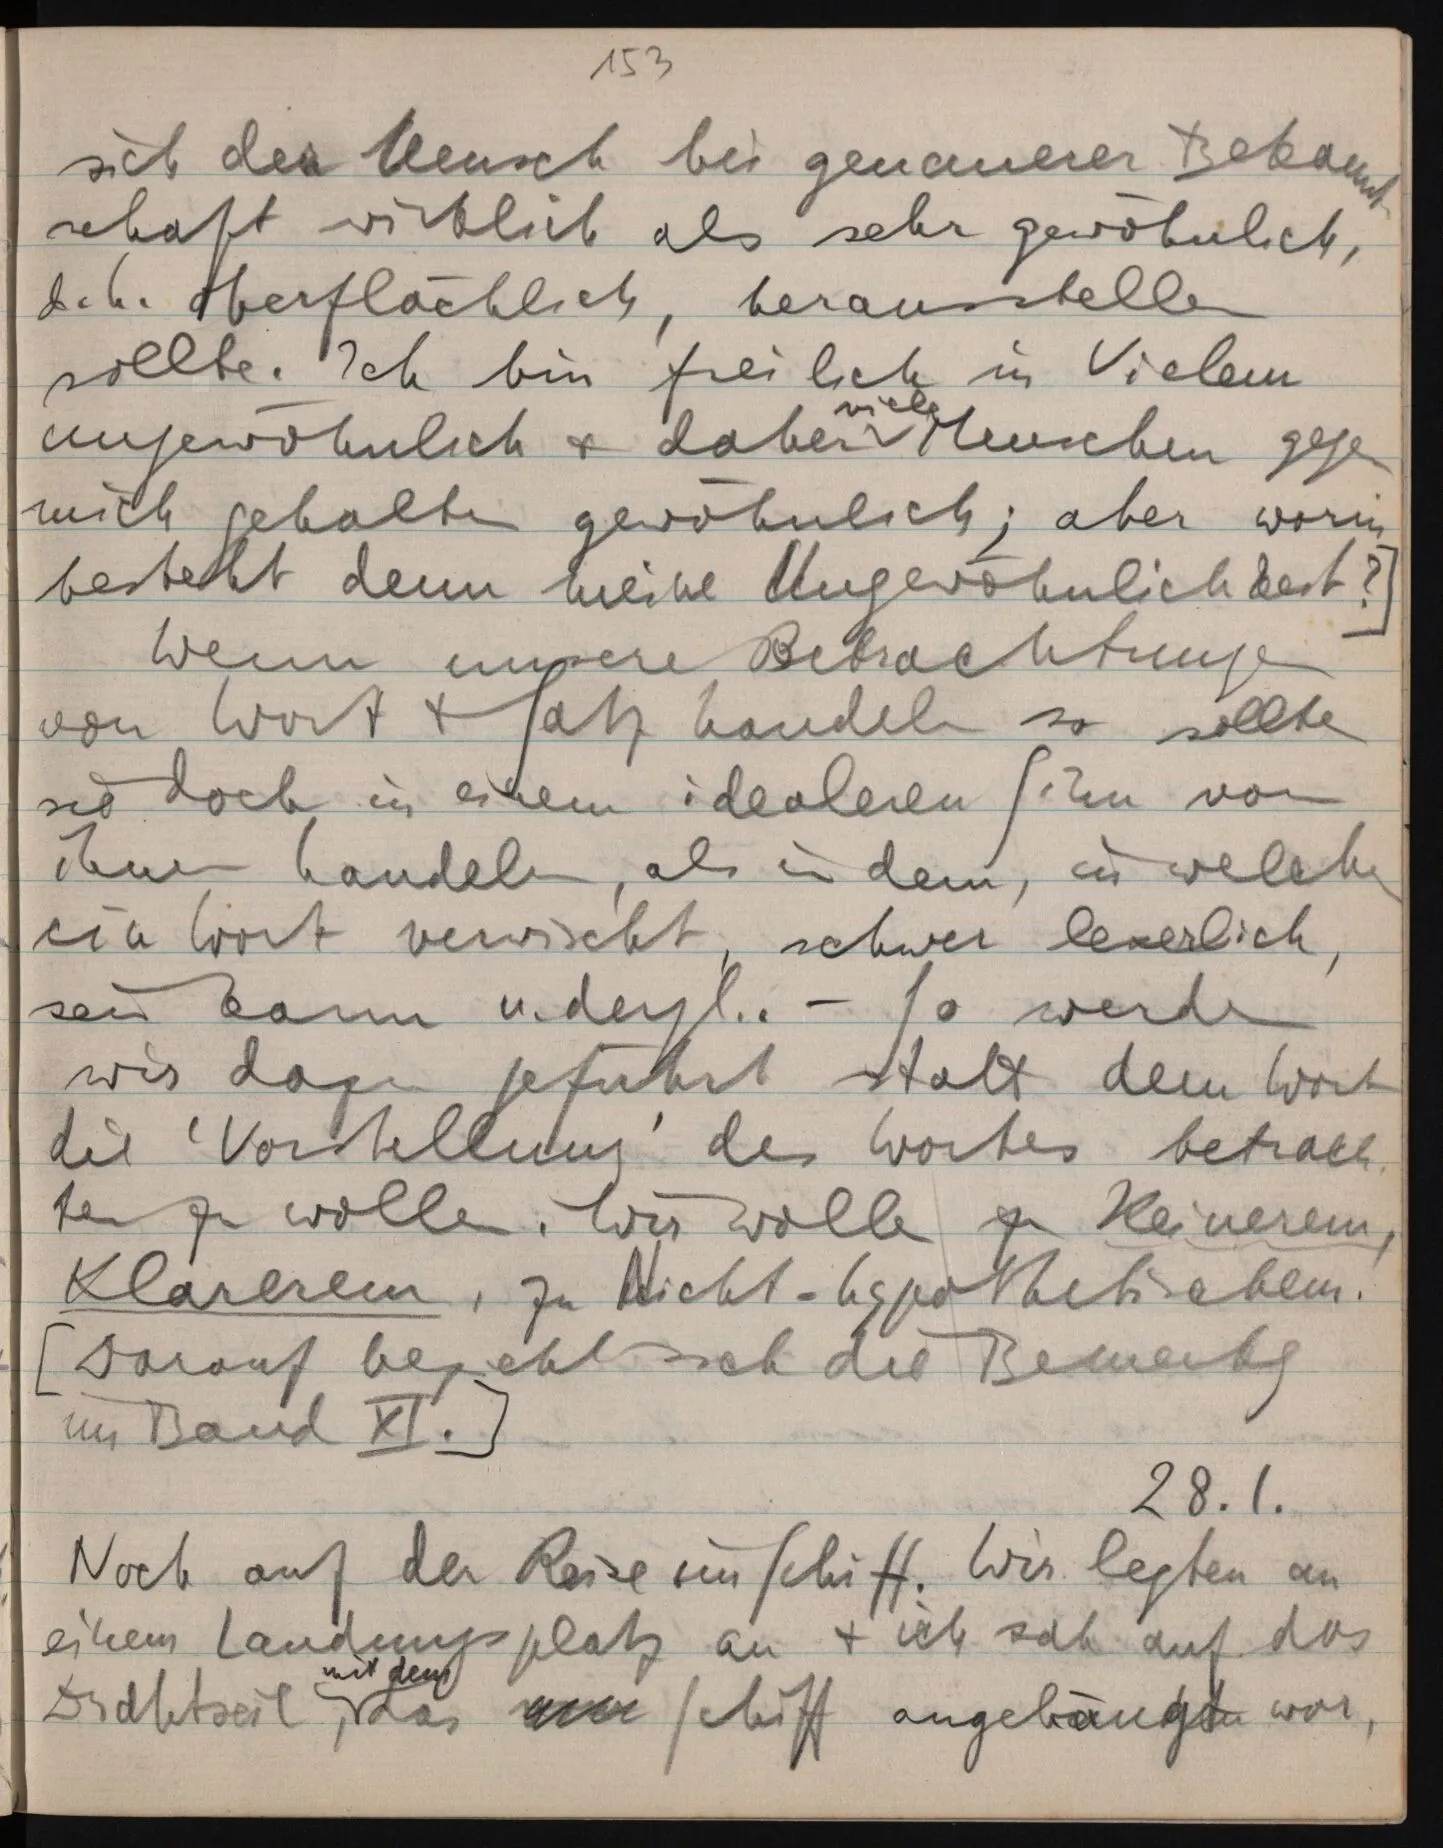 153
sich der Mensch bei genauerer Bekannt-
schaft wirklich als sehr gewöhnlich,
d.h. oberflächlich, herausstellen
sollte. Ich bin freilich in Vielem
ungewöhnlich + daher viele Menschen gegen
mich gehalten gewöhnlich; aber worin
besteht denn meine Ungewöhnlichkeit?]
Wenn unsere Betrachtungen
von Wort + Satz handeln so sollten
sie doch in einem idealeren Sinn von
ihnen handeln, als in dem, in welchem
ein Wort verwischt, schwer leserlich,
sein kann u. dergl.. – So werden
wir dazu geführt statt dem Wort
die ‘Vorstellung’ des Wortes betrach-
ten zu wollen. Wir wollen zu Reinerem,
Klarerem, zu Nicht-hypothetischem.
[Darauf bezieht sich die Bemerkg
im Band XI.]
28.1.
Noch auf der Reise im Schiff. Wir legten an
einem Landungsplatz an + ich sah auf das
Drahtseil, mit dem das Schiff angehängt war,